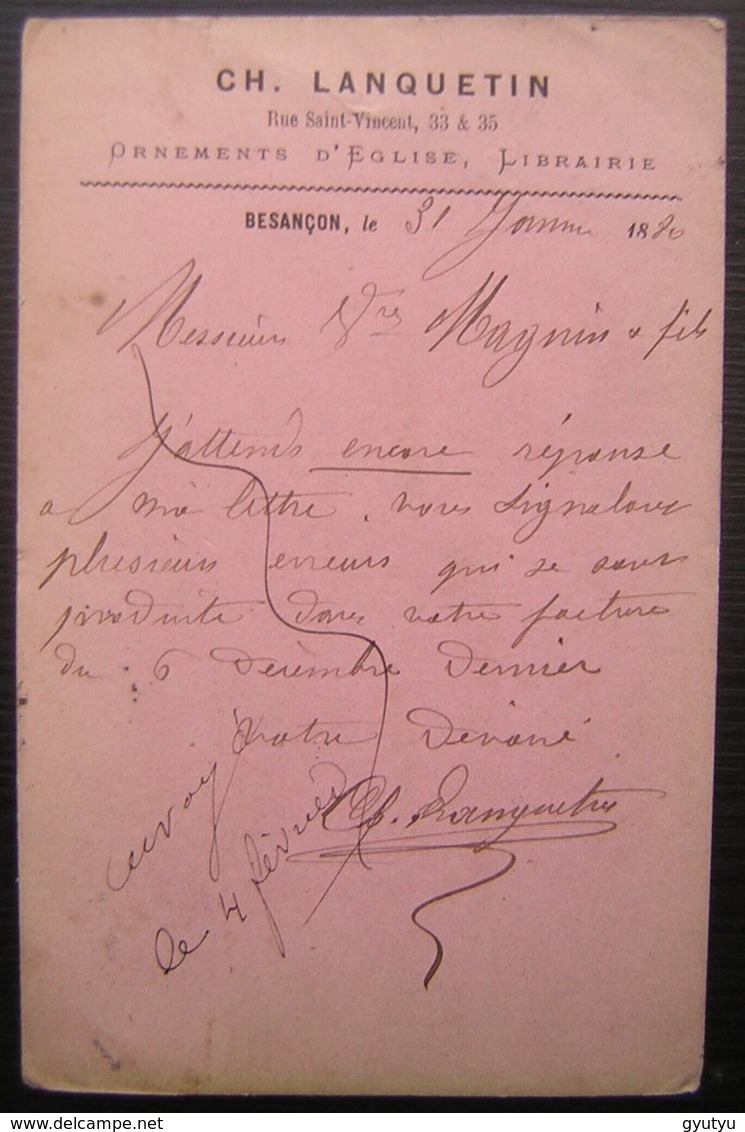 CH. LANQUETIN
Rue Saint-Vincent, 33 & 35
ORNEMENTS D'EGLISE, LIBRAIRIE
BESANÇON, le 31 Janvier 1880
Messieurs Vve Magnin & fils
J'attends encore réponse
a ma lettre, vous signalant
plusieurs erreurs qui se sont
produite dans votre facture
du 6 Décembre Dernier
Votre Dévoué
Ch. Lanquetin
envoy
le 4 février
gyutyu